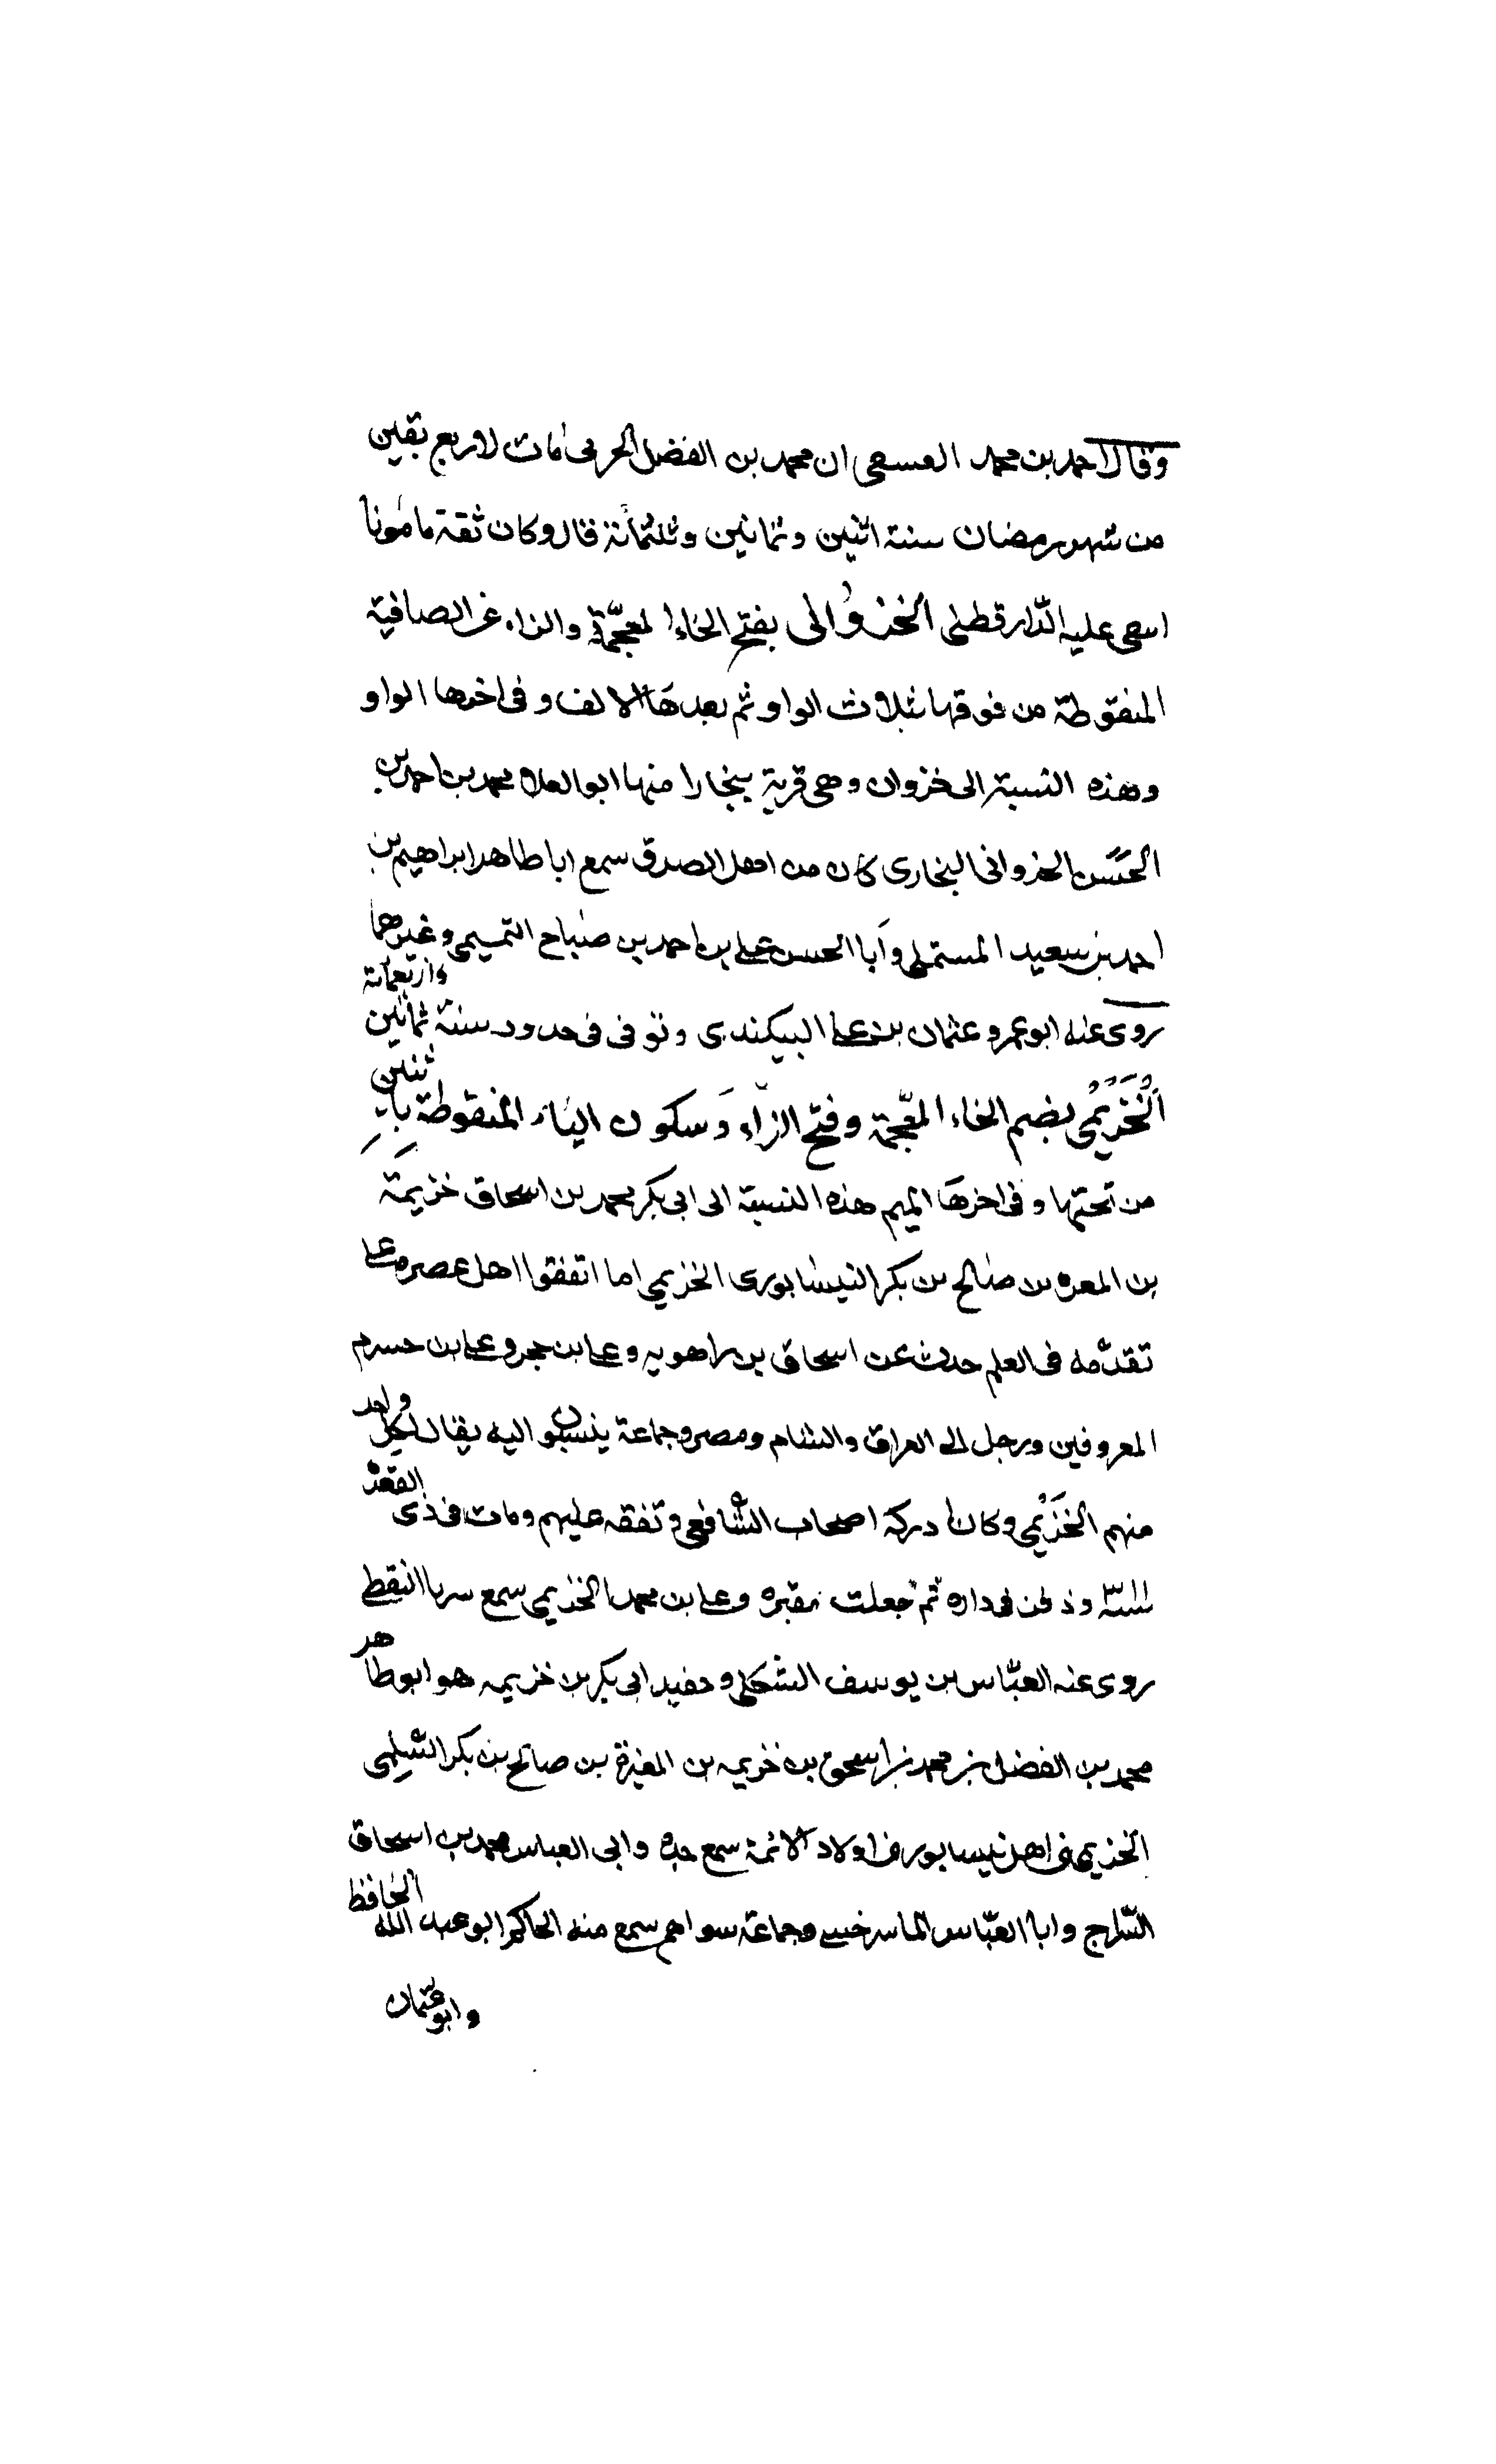 وقال احمد بن محمد العسمى ان محمد بن الفضل الحربى مات لاربع بقين
من شهر رمضان سنة اثنين وثمانين وثلثمائة قال وكان ثقة مامونا
عليه الدارقطنى الخزوالى بفتح الخاء المعجمة والزاء
المنقوطة من فوقها بثلاث الواو ثم بعدها الالف وفى اخرها الواو
وهذه النسبة الى خزوان وهى قرية ببخارا منها ابو العلا محمد بن احمد بن
الحسن الخزوانى البخارى كان من اهل الصدق سمع ابا طاهر ابراهيم بن
احمد بن سعيد المستملى وابا الحسن على بن احمد بن صباح التميمى وغيرهما
روى عنه ابو عمرو عثمان بن على البيكندى وتوفى فى حدود سنة ثمانين واربعمائة
الخزيمى بضم الخاء المعجمة وفتح الزاء وسكون الياء المنقوطة باثنين
من تحتها وفى اخرها الميم هذه النسبة الى ابى بكر محمد بن اسحاق خزيمة
بن المعره بن صالح بن بكر النيسابورى الخزيمى اما اتفقوا اهل عصره على
تقدمه فى العلم حدث عن اسحاق بن راهويه وعلى بن حجر وعلى بن خسرم
المعروفين ورجل الى العراق والشام ومصر وجماعة ينسبون اليه يقال لكل واحد
منهم الخزيمى وكان ادركة اصحاب الشافعى وتفقه عليهم ومات فى ذى القعدة
ودفن فى داره ثم جعلت مقبره وعلى بن محمد الخزيمى سمع سريا السقطى
روى عنه العباس بن يوسف الشكلى وحفيد ابى بكر بن خزيمه هو ابو طاهر
محمد بن الفضل بن محمد بن اسحق بن خزيمه بن المغيرة بن صالح بن بكر السلمى
الخزيمى من اهل نيسابور من اولاد الائمة سمع جده وابى العباس محمد بن اسحاق
السراج وابا العباس الماسرخسى وجماعة سواهم سمع منه الحاكم ابو عبد الله الحافظ
وابو عثمان